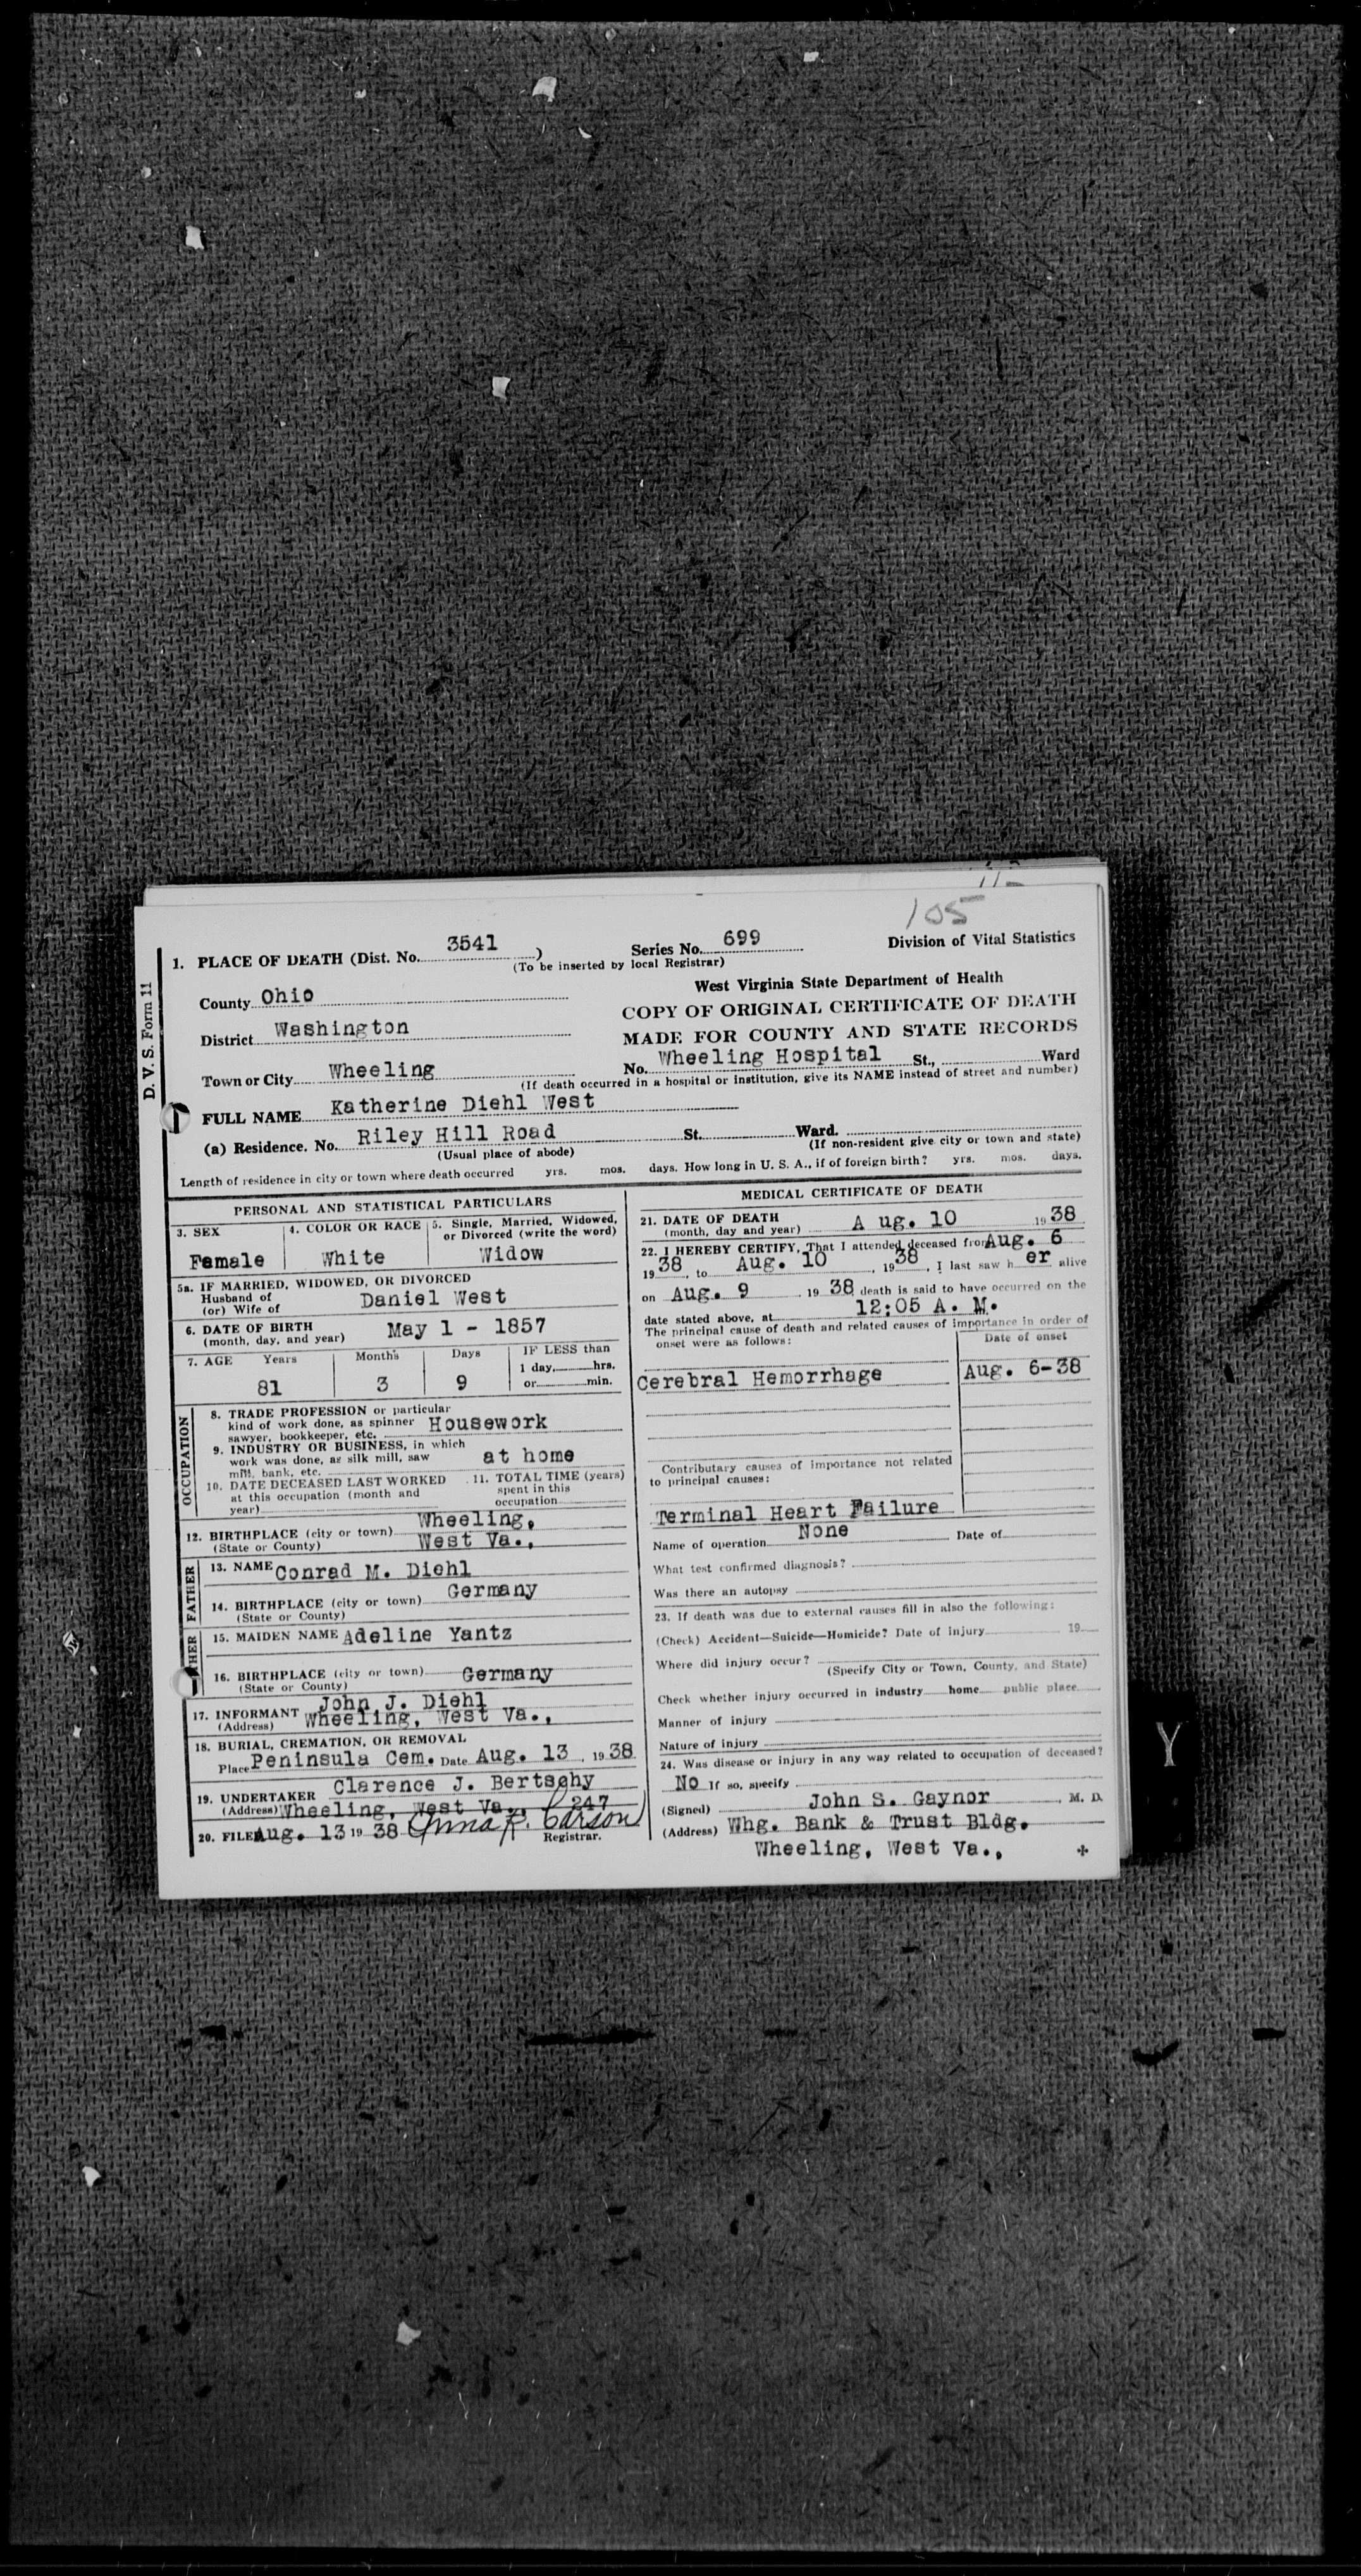 105
D. V. S. Form 11
1. PLACE OF DEATH (Dist. No. 3541 )
Series No. 699
(To be inserted by local Registrar)
Division of Vital Statistics
County Ohio
West Virginia State Department of Health
COPY OF ORIGINAL CERTIFICATE OF DEATH
District Washington
MADE FOR COUNTY AND STATE RECORDS
Town or City Wheeling
No. Wheeling Hospital St., Ward
(If death occurred in a hospital or institution, give its NAME instead of street and number)
FULL NAME Katherine Diehl West
(a) Residence. No. Riley Hill Road St. Ward.
(Usual place of abode)
(If non-resident give city or town and state)
Length of residence in city or town where death occurred yrs. mos. days. How long in U. S. A., if of foreign birth? yrs. mos. days.
PERSONAL AND STATISTICAL PARTICULARS
3. SEX
Female
4. COLOR OR RACE
White
5. Single, Married, Widowed,
or Divorced (write the word)
Widow
5a. IF MARRIED, WIDOWED, OR DIVORCED
Husband of
(or) Wife of Daniel West
6. DATE OF BIRTH
(month, day, and year) May 1 - 1857
7. AGE Years Months Days IF LESS than
1 day, hrs.
81 3 9 or min.
OCCUPATION
8. TRADE PROFESSION or particular
kind of work done, as spinner Housework
sawyer, bookkeeper, etc.
9. INDUSTRY OR BUSINESS, in which
work was done, as silk mill, saw at home
mill, bank, etc.
10. DATE DECEASED LAST WORKED
at this occupation (month and
year)
11. TOTAL TIME (years)
spent in this
occupation
12. BIRTHPLACE (city or town) Wheeling,
(State or County) West Va.,
FATHER
13. NAME Conrad M. Diehl
14. BIRTHPLACE (city or town) Germany
(State or County)
THER
15. MAIDEN NAME Adeline Yantz
16. BIRTHPLACE (city or town) Germany
(State or County)
17. INFORMANT John J. Diehl
(Address) Wheeling, West Va.,
18. BURIAL, CREMATION, OR REMOVAL
Place Peninsula Cem. Date Aug. 13, 1938
19. UNDERTAKER Clarence J. Bertschy
(Address) Wheeling, West Va., 247
20. FILED Aug. 13 19 38 Anna P. Carson
Registrar.
MEDICAL CERTIFICATE OF DEATH
21. DATE OF DEATH
(month, day and year) A ug. 10 1938
22. I HEREBY CERTIFY, That I attended deceased from Aug. 6
1938, to Aug. 10, 1938, I last saw h er alive
on Aug. 9 19 38 death is said to have occurred on the
date stated above, at 12:05 A. M.
The principal cause of death and related causes of importance in order of
onset were as follows:
Date of onset
Cerebral Hemorrhage Aug. 6-38
Contributory causes of importance not related
to principal causes:
Terminal Heart Failure
Name of operation None Date of
What test confirmed diagnosis?
Was there an autopsy
23. If death was due to external causes fill in also the following:
(Check) Accident—Suicide—Homicide? Date of injury 19
Where did injury occur?
(Specify City or Town, County, and State)
Check whether injury occurred in industry home public place
Manner of injury
Nature of injury
24. Was disease or injury in any way related to occupation of deceased?
No If so, specify
(Signed) John S. Gaynor, M. D.
(Address) Whg. Bank & Trust Bldg.
Wheeling, West Va.,
Y